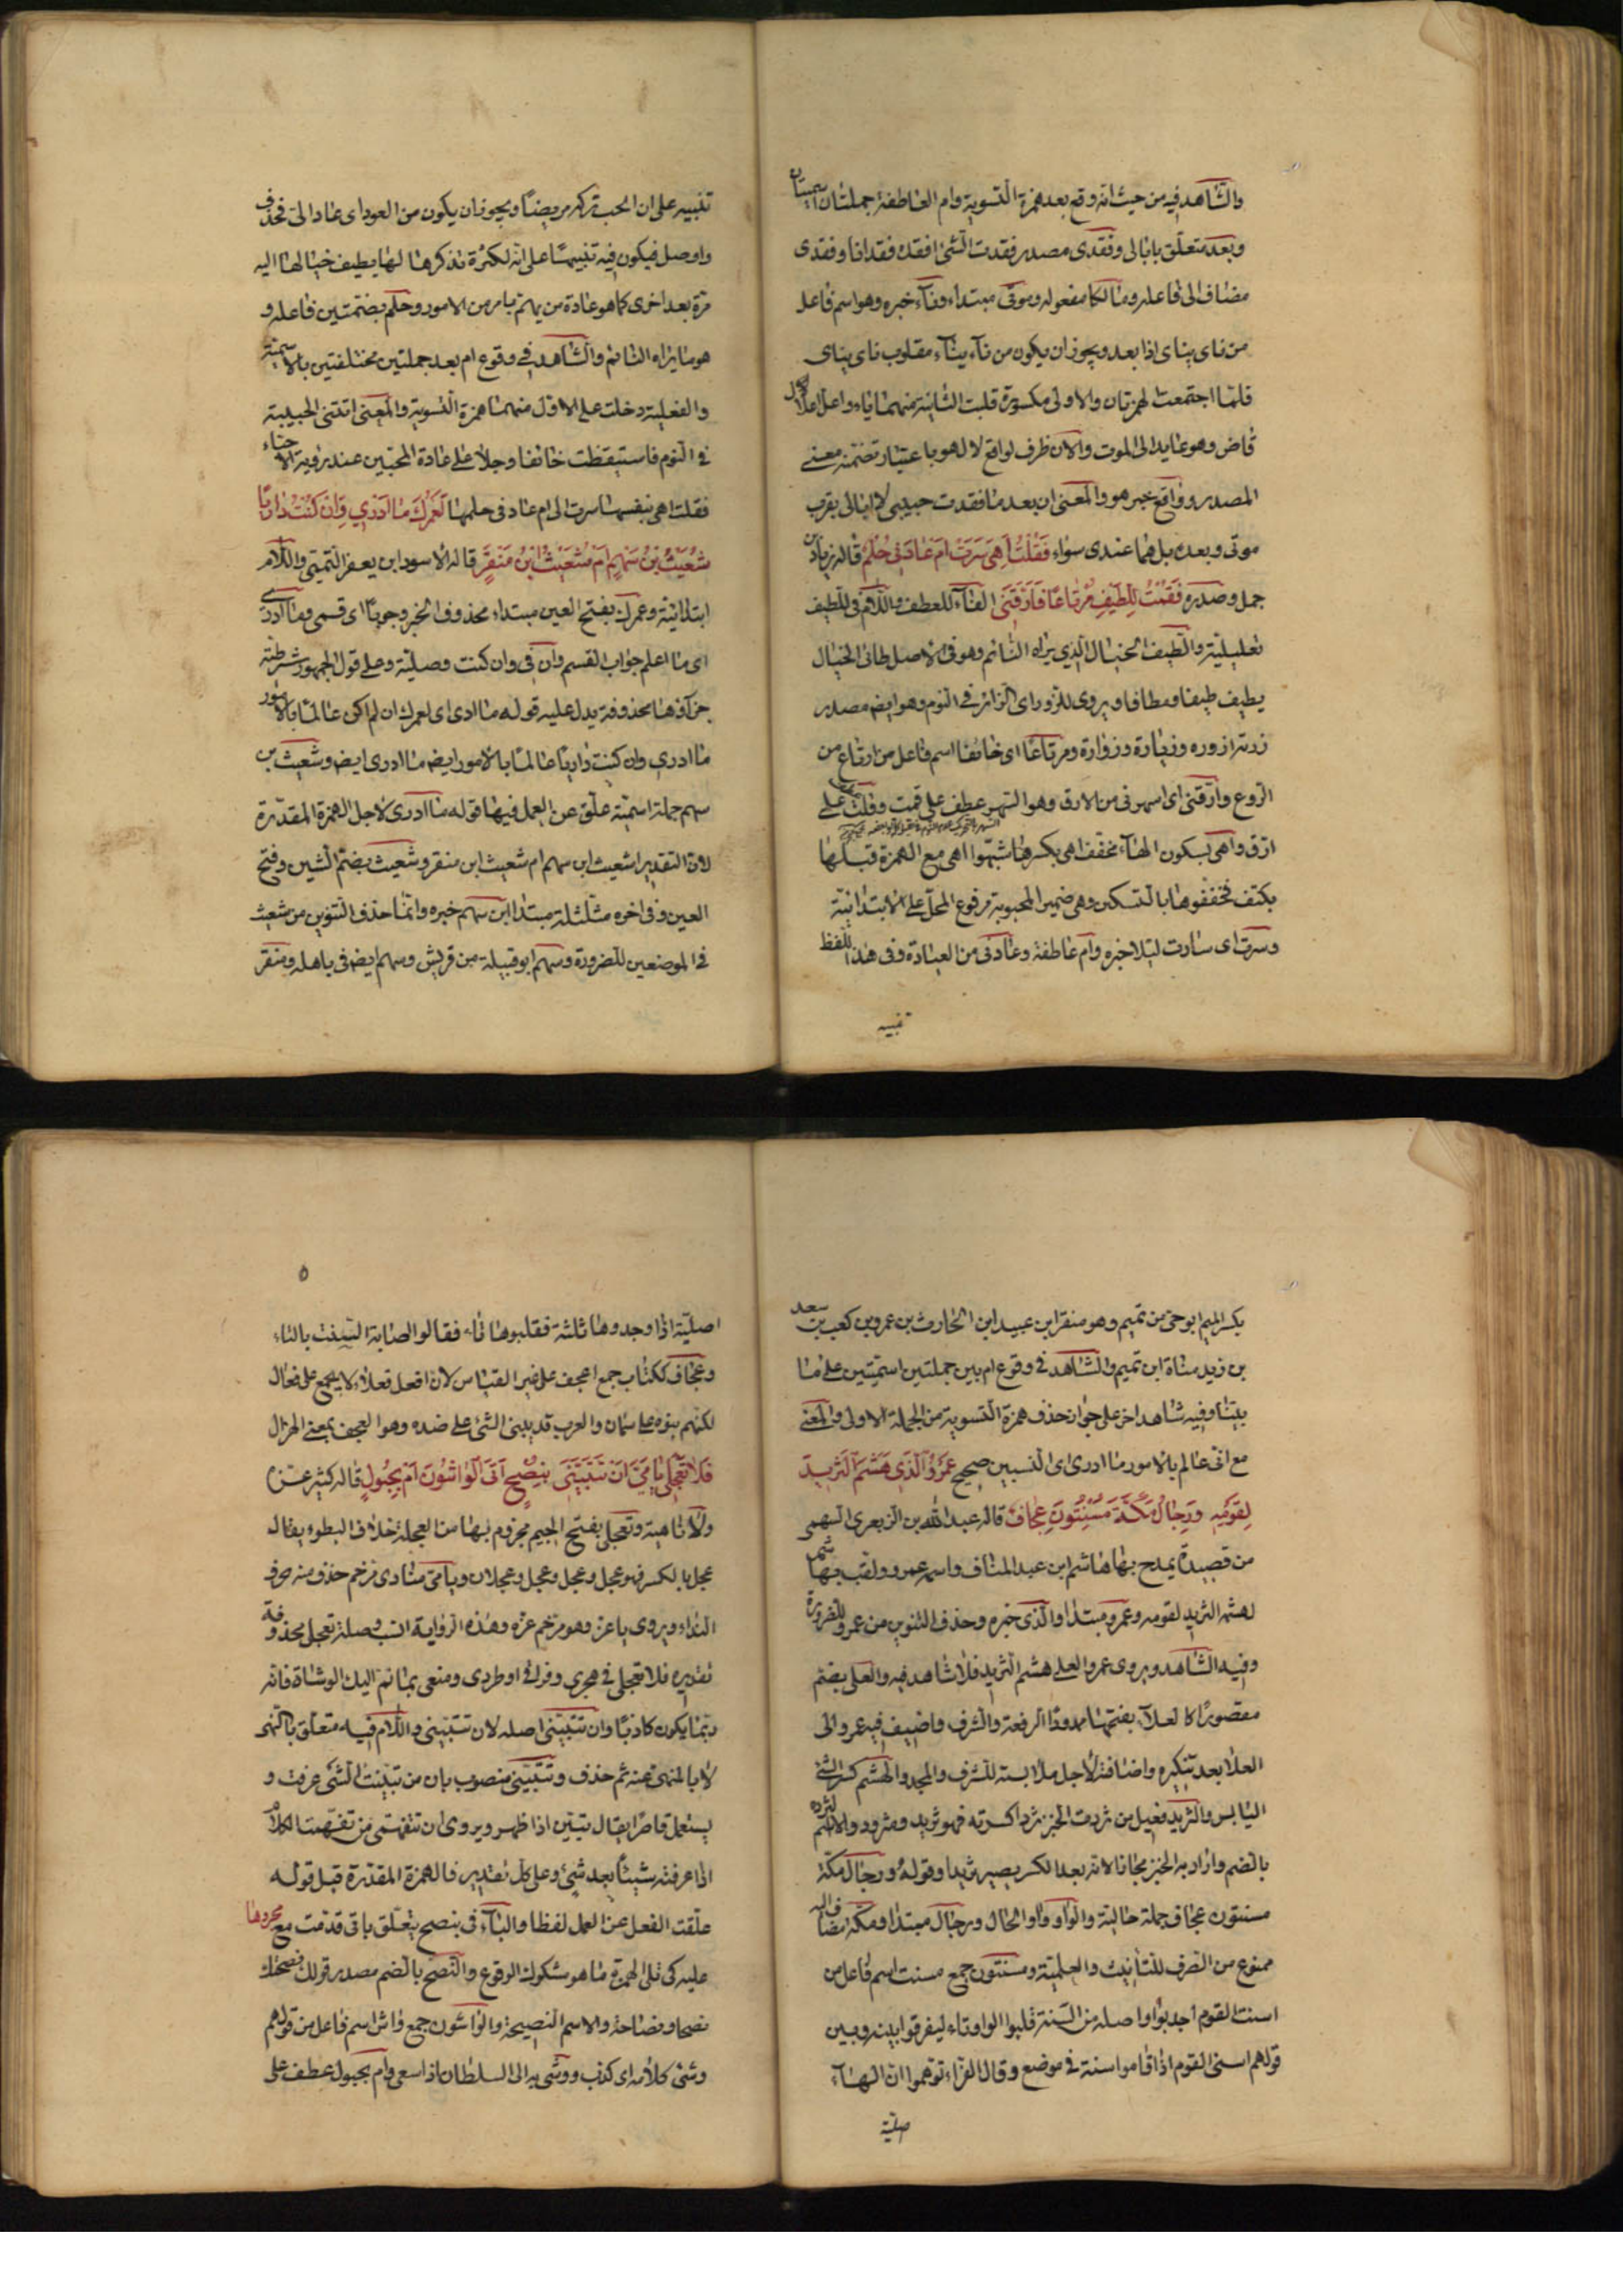 والشاهد فيه من حيث انه وقع بعد همزة التسوية وام العاطفة جملتان اسميتان
وبعد متعلق بابالى وفقدى مصدر فقدت الشئ افقده فقدانا وفقدى
مضاف الى فاعله ومالكا مفعوله وموتى مبتداء وناء خبره وهو اسم فاعل
من ناى يناى اذا بعد ويجوز ان يكون من ناء يناء مقلوب ناى يناى
فلما اجتمعت الهمزتان والاولى مكسورة قلبت الثانية منهما ياء واعل اعلال
قاض وهو عايد الى الموت والآن ظرف لواقع لا لهو باعتبار تضمنه معنى
المصدر وواقع خبر هو والمعنى ان بعد ما فقدت حبيبى لا ابالى بقرب
موتى وبعده بل هما عندى سواء فَقُلْتُ اَهِيَ سَرَتْ اَمْ عَادَنِى حُلُمُ قاله زياد بن
جمل وصدره فَقُمْتُ لِلطَّيْفِ مُرْتَاعًا فَاَرَّقَنِى الفاء للعطف واللام فى للطيف
تعليلية والطيف الخيال الذي يراه النائم وهو فى الاصل طاف الخيال
يطيف طيفا ومطافا ويروى للزور اى الزائر فى النوم وهو ايض مصدر
زرته ازوره وزيارة وزوارة ومرتاعا اى خائفا اسم فاعل من ارتاع من
الروع وارقنى اى اسهرنى من الارق وهو السهر عطف على قمت وفقلت عطف على
ارق واهى بسكون الهاء مخفف اهى بكسرها شبهوا اهى مع الهمزة قبلها
بكتف فخففوها بالتسكين وهى ضمير المحبوبة مرفوع المحل على الابتدائية
وسرت اى سارت ليلا خبره وام عاطفة وعادنى من العيادة وفى هذا اللفظ
تنبيه
تنبيه على ان الحب تركه مريضا ويجوز ان يكون من العود اى عاد الىّ فحذف
واوصل فيكون فيه تنبيها على انه لكثرة تذكرها لها يطيف خيالها اليه
مرة بعد اخرى كما هو عادة من يهتم بامر من الامور وحلم بضمتين فاعله و
هو ما يراه النائم والشاهد فى وقوع ام بعد جملتين مختلفتين بالاسمية
والفعلية دخلت على الاول منهما همزة التسوية والمعنى اتتنى الحبيبة
فى النوم فاستيقظت خائفا وجلا على عادة المحبين عند رؤية الاحباء
فقلت اهى بنفسها سرت الى ام عادنى حلمها لَعَمْرُكَ مَا اَدْرِي وَاِنْ كُنْتُ دَارِيًا
شُعَيْثُ بْنُ سَهْمٍ اَمْ شُعَيْثُ ابْنُ مِنْقَرِ قاله الاسود ابن يعفر التميمى واللام
ابتدائية وعمرك بفتح العين مبتداء محذوف الخبر وجوبا اى قسمى وما ادرى
اى ما اعلم جواب القسم وان فى وان كنت وصلية وعلى قول الجمهور شرطية
جزآؤها محذوفة يدل عليه قوله ما ادرى اى لعمرك ان لم اكن عالما بالامور
ما ادرى وان كنت داريا عالما بالامور ايض ما ادرى ايض وشعيث بن
سهم جملة اسمية علق عن العمل فيها قوله ما ادرى لاجل الهمزة المقدرة
لان التقدير اشعيث ابن سهم ام شعيث ابن منقر وشعيث بضم الشين وفتح
العين وفى اخره مثلثلة مبتدا ابن سهم خبره وانما حذف التنوين من شعيث
فى الموضعين للضرورة وسهم ابو قبيلة من قريش وسهم ايض فى باهله ومنقر
بكسر الميم ابو حى من تميم وهو منقر ابن عبيد ابن الحارث بن عمرو بن كعب بن سعد
بن زيد مناة ابن تميم والشاهد فى وقوع ام بين جملتين اسميتين على ما
بينا وفيه شاهد اخر على جواز حذف همزة التسوية من الجملة الاولى والمعنى
مع انى عالم بالامور ما ادرى اى النسبين صحيح عَمْرُو الَّذِي هَشَمَ الثَّرِيدَ
لِقَوْمِهِ وَرِجَالُ مَكَّةَ مُسْنِتُونَ عِجَافُ قاله عبد الله بن الزبعرى السهمى
من قصيدة يمدح بها هاشم ابن عبد المناف واسمه عمرو ولقب بهاشم
لهشمه الثريد لقومه وعمرو مبتدا والذى خبره وحذف التنوين من عمرو للضرورة
وفيه الشاهد ويروى عمرو العلى هشم الثريد فلا شاهد فيه والعلى بضم
مقصورا كالعلآء بفتحها ممدودا الرفعة والشرف واضيف فيه عمرو الى
العلا بعد تنكيره واضافة لاجل ملابسته للشرف والمجد والهشم كسر الشئ
اليابس والثريد فعيل من ثردت الخبز ثردا كسرته فهو ثريد ومثرود والاسم الثرده
بالضم واراد به الخبز مجازا لانه بعد الكسر يصير ثريدا وقوله ورجال مكة
مسنتون عجاف جملة حالية والواو واو الحال ورجال مبتدا ومكة مضاف اليه
ممنوع من الصرف للتانيث والعلمية ومسنتون جمع مسنت اسم فاعل من
اسنت القوم اجدبوا واصله من السنة قلبوا الواو تاء ليفرقوا بينه وبين
قولهم اسنى القوم اذا اقاموا سنة فى موضع وقال الفراء توهموا ان الهآء
صلية
٥
اصلية اذا وجدوها ثلثة فقلبوها تاء فقالوا اصابة السنت بالتاء
وعجاف ككتاب جمع اعجف على غير القياس لان افعل فعلاء لا يجمع على فعال
لكنهم بنوه على سمان والعرب قد يبنى الشئ على ضده وهو العجف بمعنى الهزال
فَلَا تَعْجَلِي يَا مَيَّ اَنْ تَتَبَيَّنِي بِنُصْحٍ اَتَى الْوَاشُونَ اَمْ بِحُبُولِ قاله كثير عزة
ولا ناهية وتعجلى بفتح الجيم مجزوم بها من العجلة خلاف البطوء يقال
عجل بالكسر فهو عجل وعجل وعجل وعجلان ويامى منادى مرخم حذف منه حرف
النداء ويروى يا عز وهو مرخم عزة وهذه الرواية انسب وصلة تعجل محذوفة
تقديره فلا تعجلى فى هجرى وفراقى او طردى ومنعى بما نم اليك الوشاة فانه
ربما يكون كاذبا وان تتبينى اصله لان تتبينى واللام فيه متعلق بالنهى
لا بالمنهى عنه ثم حذف وتتبينى منصوب بان من تبينت الشئ عرفت و
يستعمل قاصرا يقال تبين اذا ظهر ويروى ان تتفهمى من تفهمت الكلام
اذا عرفته شيئا بعد شئ وعلى كل تقدير فالهمزة المقدرة قبل قوله
علقت الفعل عن العمل لفظا والبآء فى بنصح يتعلق باتى قدمت مع مجرورها
عليه كى تلى الهمزة ما هو مشكوك الوقوع والنصح بالضم مصدر قولك نصحتك
نصحا ونصاحة والاسم النصيحة والواشون جمع واش اسم فاعل من قولهم
وشى كلامه اى كذب ووشى به الى السلطان اذا سعى وام بحبول عطف على